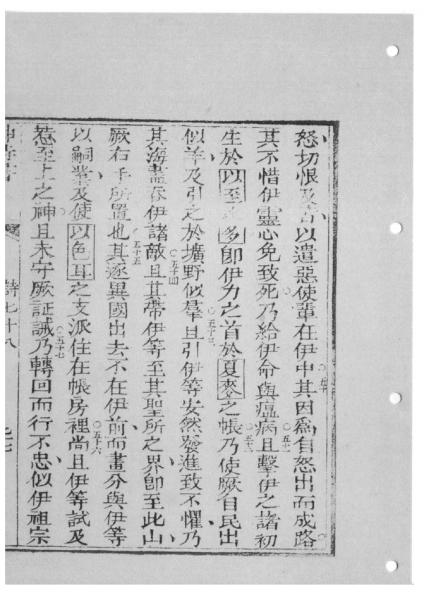 怒切恨及苦以遣惡使輩在伊中○五十其因為自怒出而成路
其不惜伊靈心免致死乃給伊命與瘟病○五十一且擊伊之諸初
生於以至多即伊力之首於夏麥之帳○五十二乃使厥自民出
似羊及引之於壙野似羣○五十三且引伊等安然發進致不懼乃
其海盡吞伊諸敵○五十四且其帶伊等至其聖所之界即至此山
厥右手所置也○五十五其逐異國出去不在伊前而畫分與伊等
以嗣業及使以色耳之支派住在帳房裡○五十六尚且伊等試及
惹至上之神且未守厥証誡○五十七乃轉回而行不忠似伊祖宗
詩七十八